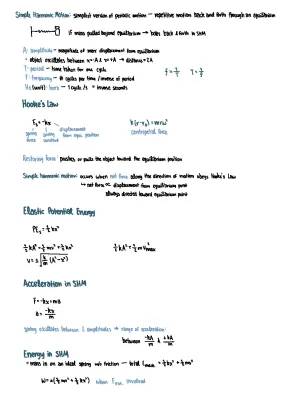 Simple Harmonic Motion: simplest version of periodic motion – repetitive motion back and forth through an equilibrium
if mass pulled beyond equilibrium → bobs back & forth in SHM
A: amplitude – magnitude of max displacement from equilibrium
• object oscillates between x=-A & x=+A → distance = 2A
T: period – time taken for one cycle
f = 1/T T = 1/f
f: frequency – # cycles per time / inverse of period
Hz (unit): hertz – 1 cycle/s = inverse seconds
Hooke's Law
Fs = -kx
k(r-r₀) = mrω²
spring force
spring constant
displacement from equi. position
centripetal force
Restoring force: pushes or pulls the object toward the equilibrium position
Simple harmonic motion: occurs when net force along the direction of motion obeys Hooke's Law
↳ net force ∝ displacement from equilibrium point
always directed toward equilibrium point
Elastic Potential Energy
PEs = ½kx²
½kA² = ½mv² + ½kx²
½kA² = ½mv²max
v = ±√(k/m (A²-x²))
Acceleration in SHM
F = -kx = ma
a = -kx/m
spring oscillates between 2 amplitudes → range of acceleration:
between -kA/m & +kA/m
Energy in SHM
• mass is on an ideal spring w/o friction – total
= ½kx² + ½mv²
W = Δ(½mv² + ½kx²) when
involved